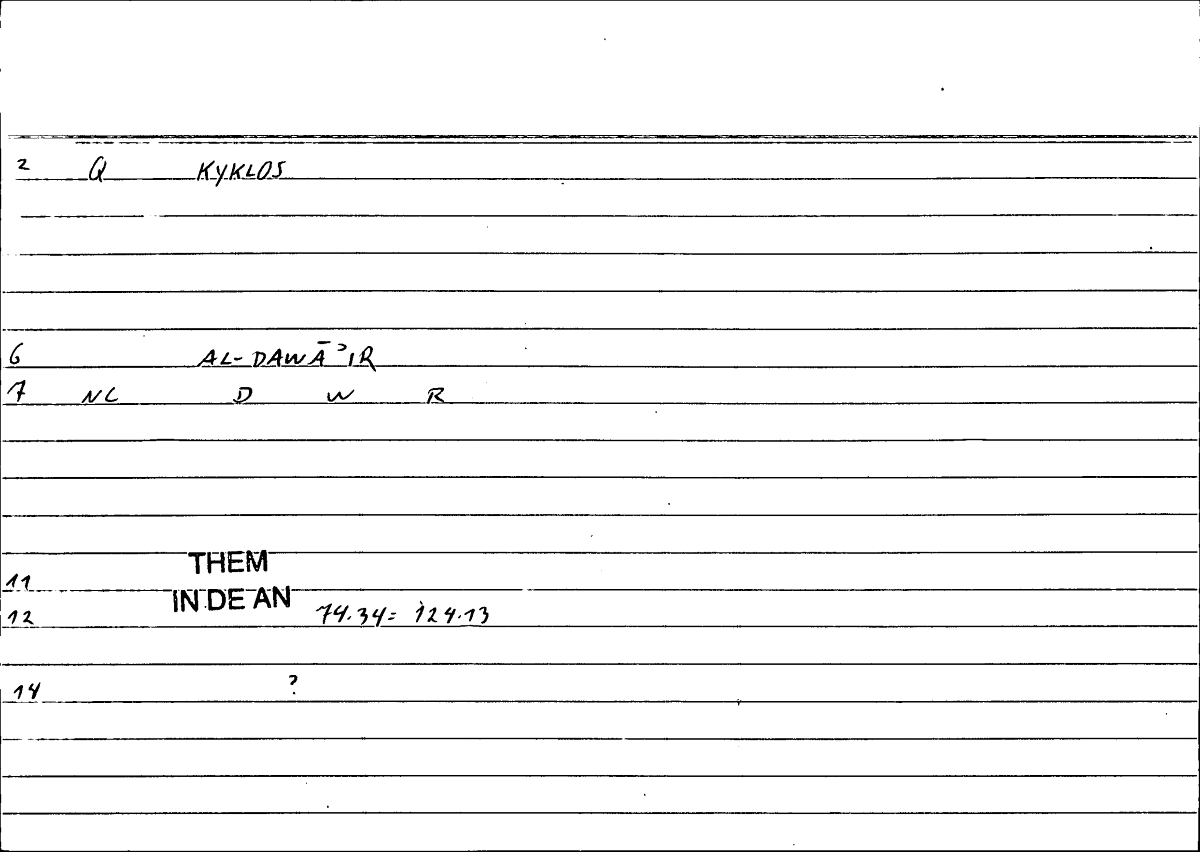 2 Q KYKLOS
6 AL-DAWĀʾIR
7 NL D W R
THEM
11
IN DE AN
12 74.34= 124.13
14 ?